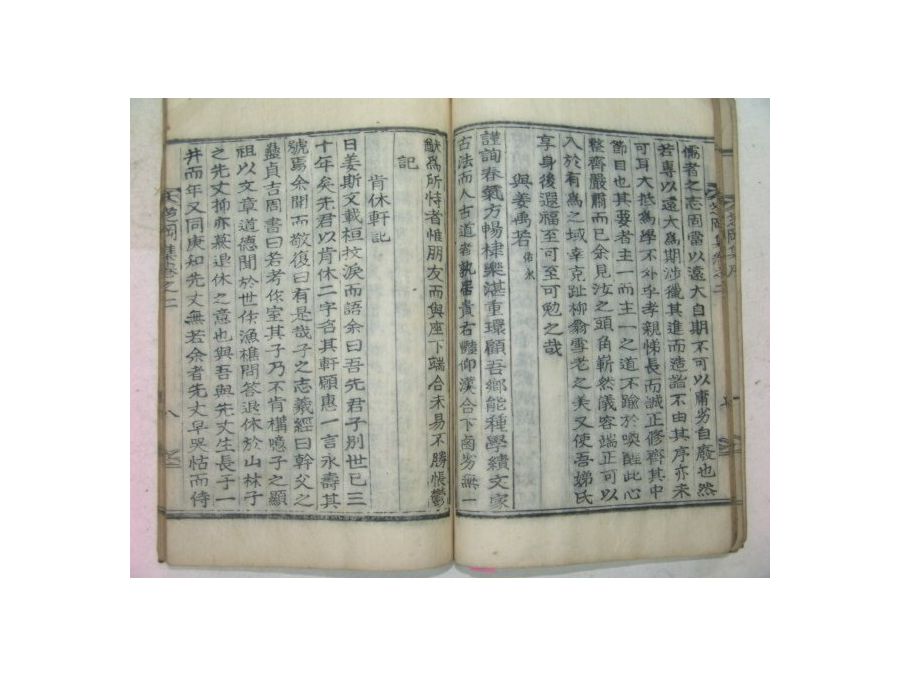 儒者之志固當以遠大自期不可以庸劣自廢也然
若專以遠大爲期涉獵其進而造詣不由其序亦未
可耳大抵爲學不外乎孝親悌長而誠正修齊其中
節目也其要者主一而主一之道不踰於喚醒此心
整齊嚴肅而已余見汝之頭角嶄然儀容端正可以
入於有爲之域幸克趾柳翁雪老之美又使吾娣氏
享身後遐福至可至可勉之哉
與姜禹若 佑永
謹詢春氣方暢棣樂湛重環顧吾鄉能種學績文家
古法而人古道者孰居貴右豔仰漢合下鹵劣無一
猷爲所恃者惟朋友而與座下端合未易不勝悵鬱
記
肯休軒記
日姜斯文載桓抆淚而語余曰吾先君子別世已三
十年矣先君以肯休二字名其軒願惠一言永壽其
號焉余聞而敬復曰有是哉子之志義經曰幹父之
蠱貞吉周書曰若考作室其子乃不肯構噫子之顯
祖以文章道德聞於世作漁樵問答退休於山林子
之先丈抑亦慕退休之意也與吾與先丈生長于一
井而年又同庚知先丈無若余者先丈早哭怙而侍
卷之二
八